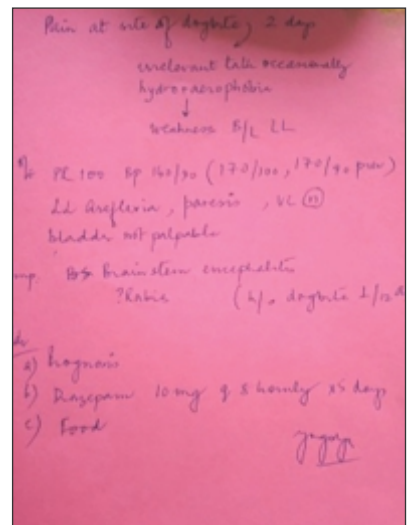 Pain at site of dogbite, 2 days
irrelevant talk occasionally
hydro+aerophobia
↓
weakness B/L LL
O/E PR 100 BP 160/90 (170/100, 170/90 prev)
LL Areflexia, paresis, UL
bladder not palpable
Imp. Brainstem encephalitis
?Rabies (h/o dogbite
a) Prognosis
b) Diazepam 10 mg q 8 hourly x5 days
c) Food